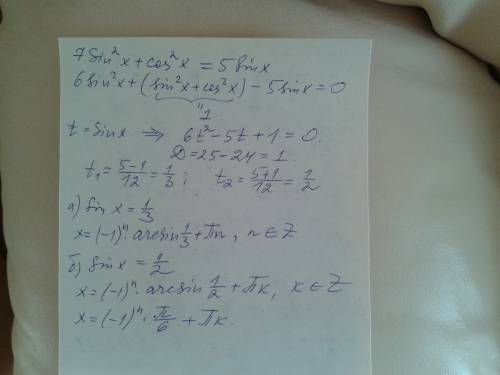 7 sin²x + cos²x = 5 sinx
6 sin²x + (sin²x + cos²x) - 5 sinx = 0
" 1
t = sinx ⇒ 6t² - 5t + 1 = 0.
D = 25 - 24 = 1.
t₁ = (5-1)/12 = 1/3; t₂ = (5+1)/12 = 1/2
а) sin x = 1/3
x = (-1)ⁿ · arcsin 1/3 + πn, n ∈ Z
б) sin x = 1/2
x = (-1)ⁿ · arcsin 1/2 + πk, k ∈ Z
x = (-1)ⁿ · π/6 + πk.